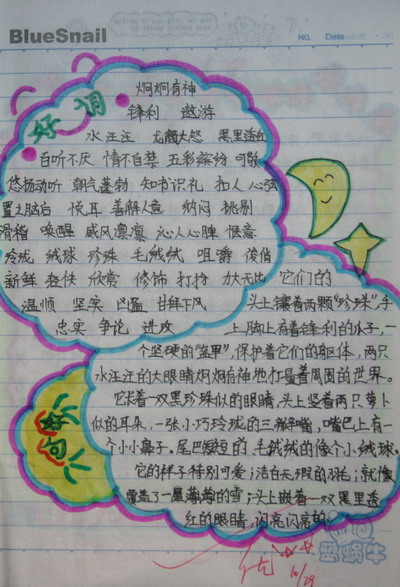 BlueSnail
NO.
Date
好词
炯炯有神
锋利 遨游
水汪汪 龙颜大怒 黑里透红
百听不厌 情不自禁 五彩缤纷 可歌
悠扬动听 朝气蓬勃 知书识礼 扣人心弦
置之脑后 悦耳 善解人意 纳闷 挑剔
滑稽 唤醒 威风凛凛 沁人心脾 惬意
玲珑 绒球 珍珠 毛绒绒 咀嚼 俊俏
新鲜 轻快 欣赏 修饰 打扮 力大无比
温顺 坚实 凶猛 甘拜下风
忠实 争论 进攻
它们的
头上镶着两颗“珍珠”,手
上脚上有着锋利的爪子,一
个坚硬的“盔甲”,保护着它们的躯体,两只
水汪汪的大眼睛炯炯有神地打量着周围的世界。
它长着一双黑珍珠似的眼睛,头上竖着两只萝卜
似的耳朵,一张小巧玲珑的三瓣嘴,嘴巴上有一
个小小鼻子。尾巴短短的,毛绒绒的像个小绒球。
它的样子特别可爱;洁白无瑕的羽毛;就像
覆盖了一层薄薄的雪;头上嵌着一双黑里透
红的眼睛,闪亮闪亮的
好句
优
10/29
蓝蜗牛